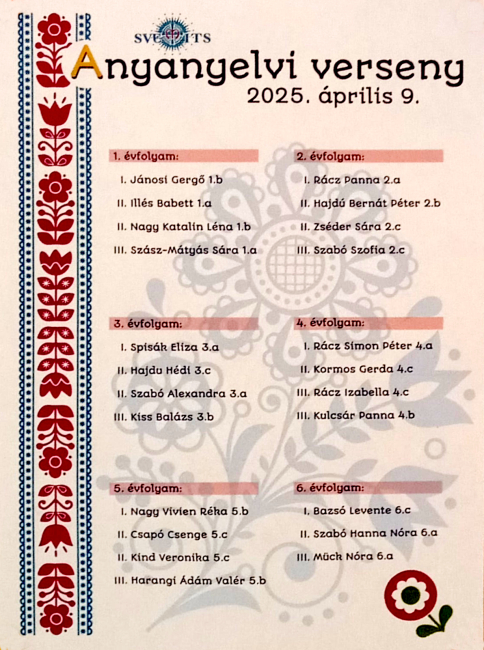 SVETITS
Anyanyelvi verseny
2025. április 9.
1. évfolyam:
I. Jánosi Gergő 1.b
II. Illés Babett 1.a
II. Nagy Katalin Léna 1.b
III. Szász-Mátyás Sára 1.a
2. évfolyam:
I. Rácz Panna 2.a
II. Hajdú Bernát Péter 2.b
II. Zséder Sára 2.c
III. Szabó Szofia 2.c
3. évfolyam:
I. Spisák Eliza 3.a
II. Hajdu Hédi 3.c
II. Szabó Alexandra 3.a
III. Kiss Balázs 3.b
4. évfolyam:
I. Rácz Simon Péter 4.a
II. Kormos Gerda 4.c
III. Rácz Izabella 4.c
III. Kulcsár Panna 4.b
5. évfolyam:
I. Nagy Vivien Réka 5.b
II. Csapó Csenge 5.c
II. Kind Veronika 5.c
III. Harangi Ádám Valér 5.b
6. évfolyam:
I. Bazsó Levente 6.c
II. Szabó Hanna Nóra 6.a
III. Mück Nóra 6.a